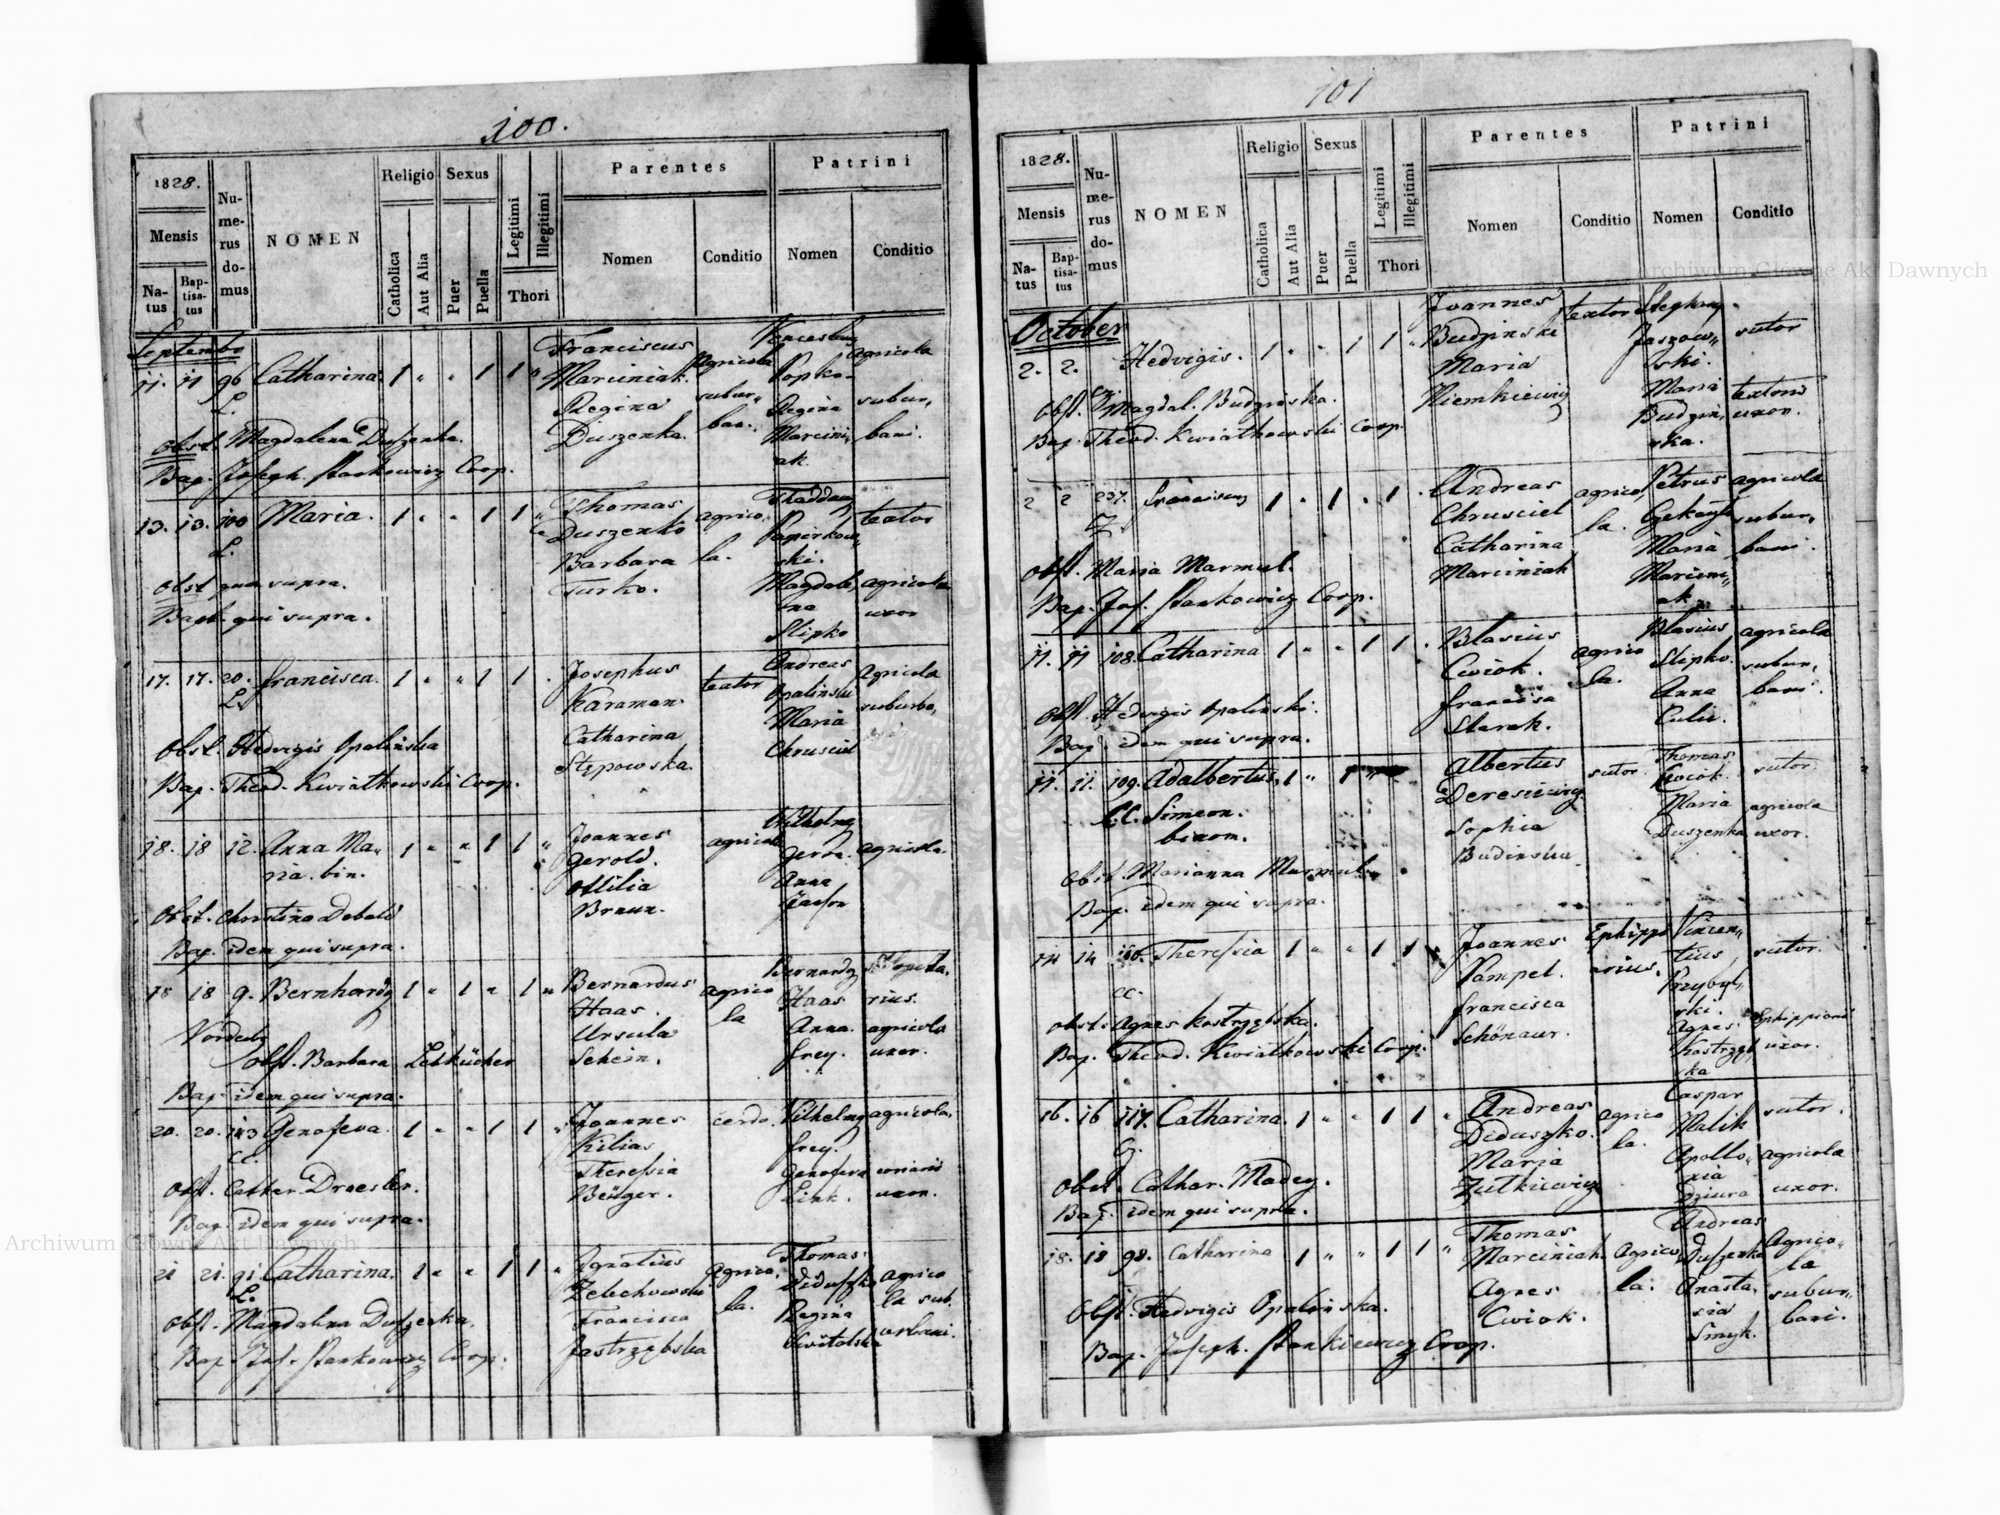 100.
1828.
Mensis
Na-
tus
Bap-
tisa-
tus
Nu-
me-
rus
do-
mus
NOMEN
Religio
Catholica
Aut Alia
Sexus
Puer
Puella
Legitimi
Illegitimi
Thori
Parentes
Nomen
Conditio
Patrini
Nomen
Conditio
Septembr
11. 11 96 Catharina. 1 " " 1 1 "
L.
Franciscus
Marciniak.
Regina
Duszenka.
Agricola
subur„
ban.
Popko-
Regina
Marcini„
ak.
agricola
subur„
bani.
Obst. Magdalena Duszenka.
Bap. Joseph. Stankowicz Coop.
13. 13. 100 Maria. 1 " " 1 1 "
L.
Thomas
Duszenko
Barbara
Turko.
agrico„
la.
Thaddaus
Papirkow„
ski.
Magdale„
na
Slipko
textor
agricola
uxor
Obst qua supra.
Bapt. qui supra.
17. 17. 20. Francisca. 1 " " 1 1 .
L.
Josephus
Karaman
Catharina
Stępowska.
textor
Andreas
Opalinski
Maria
Chrusciel
Agricola
suburba„
Obst. Hedvigis Opalinska
Bap. Theod. Kwiatkowski Coop.
18. 18 12. Anna Ma„ 1 " " 1 1 "
ria. bin.
Joannes
Gerold.
Ottilia
Braun.
agricola
Wilhelmg
Anna
agricola.
Obst. Christina Debald
Bap. idem qui supra.
18 18 9. Bernhardg 1 " 1 " 1 "
Bernardus
Haas.
Ursula
Schein.
agrico
la
Bernardg
Haas
Anna.
Frey.
rius.
agricola
uxor.
Obst. Barbara Lebkücher
Bap. idem qui supra.
20. 20. 113 Genofeva. 1 " " 1 1 "
CC.
Joannes
Kilias
Theresia
cerdo.
Vilhelmg
Frey.
Genofeva
Link.
agricola.
coriarii
uxor.
Obst. Cathar. Draesler.
Bap. idem qui supra.
21 21. 91. Catharina. 1 " " 1 1 "
L.
Ignatius
Zelechowski
Francisca
Jastrzębska
Agrico„
la.
Thomas
Diduszko
Regina
agrico
la sub„
urbani.
Obst. Magdalena Duszenka.
Bap. Jos. Stankowicz Coop.
101
1828.
Mensis
Na-
tus
Bap-
tisa-
tus
Nu-
me-
rus
do-
mus
NOMEN
Religio
Catholica
Aut Alia
Sexus
Puer
Puella
Legitimi
Illegitimi
Thori
Parentes
Nomen
Conditio
Patrini
Nomen
Conditio
October
2. 2. Hedvigis. 1 " " 1 1 "
Joannes
Budzinski
Maria
Niemkiewicz
textor
Stephang
Jaszow„
ski.
Maria
Budzin„
ska.
sutor
textoris
uxor.
Obst. Magdal. Budzinska.
Bap. Theod. Kwiatkowski Coop.
2 2 237. Franciscus 1 " 1 " 1 .
Andreas
Chrusciel
Catharina
Marciniak
agrico
la.
Petrus
Maria
Marcini„
ak.
agricola
subur„
bani.
Obst. Maria Marmul.
Bap. Jos. Stankowicz Coop.
11. 11 108. Catharina 1 " " 1 1 .
Blasius
Cwiok.
Francisca
Starak.
agrico
la.
Blasius
Slipko.
Anna
Culic.
agricola
subur„
bani.
Obst. Hedvigis Opalinski.
Bap. idem qui supra.
11. 11. 109. Adalbertus, 1 " 1
CC. Simeon.
binom.
Albertus
Deresiewicz
Sophia
Budinska
sutor
Thomas
Cwiok.
Maria
Duszenka
sutor.
agricola
uxor.
Obst. Marianna Marmul.
Bap. idem qui supra.
14 14 110. Theresia 1 " " 1 1 "
CC.
Joannes
Pampel.
Francisca
Schönaur.
Ephippi
arius.
Vincen„
tius
Przybyl„
ski.
Agnes
Kostrzęb„
ska
sutor.
Ephippiarii
uxor.
Obst. Agnes Kostrzębska.
Bap. Theod. Kwiatkowski Coop.
16. 16 117. Catharina. 1 " " 1 1 "
Andreas
Diduszko.
Maria
Zutkiewicz
agrico
la.
Caspar
Malik
Apollo„
nia
Dziura
sutor.
agricola
uxor.
Obst. Cathar. Madey.
Bap. idem qui supra.
18. 18 98. Catharina 1 " " 1 1 "
Thomas
Marciniak.
Agnes
Cwiok.
Agrico„
la.
Andreas
Duszenka
Anasta„
sia
Smyk.
Agrico„
la
subur„
bani.
Obst. Hedvigis Opalinska.
Bap. Joseph. Stankiewicz Coop.
Archiwum Główne Akt Dawnych
Archiwum Główne Akt Dawnych